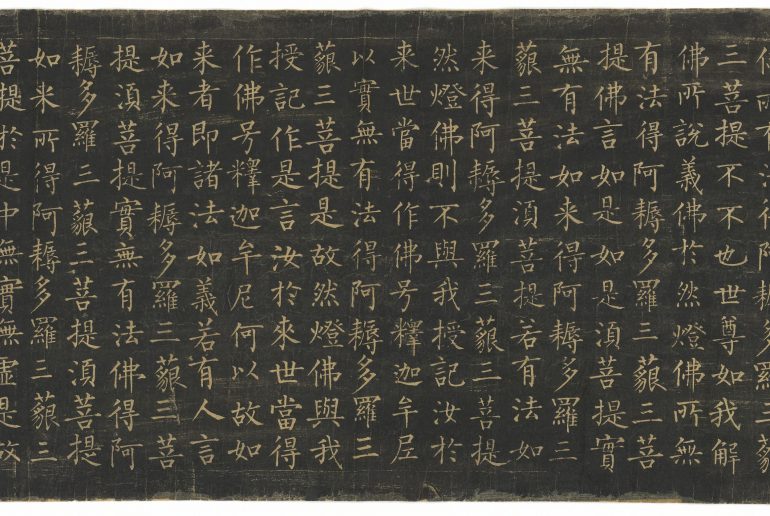 佛所有法得阿耨多羅三藐
三菩提不不也世尊如我解
佛所說義佛於然燈佛所無
有法得阿耨多羅三藐三菩
提佛言如是如是須菩提實
無有法如来得阿耨多羅三
藐三菩提須菩提若有法如
来得阿耨多羅三藐三菩提
然燈佛則不與我授記汝於
来世當得作佛号釋迦牟尼
以實無有法得阿耨多羅三
藐三菩提是故然燈佛與我
授記作是言汝於來世當得
作佛号釋迦牟尼何以故如
来者即諸法如義若有人言
如来得阿耨多羅三藐三菩
提須菩提實無有法佛得阿
耨多羅三藐三菩提須菩提
如来所得阿耨多羅三藐三
菩提於是中無實無虛是故